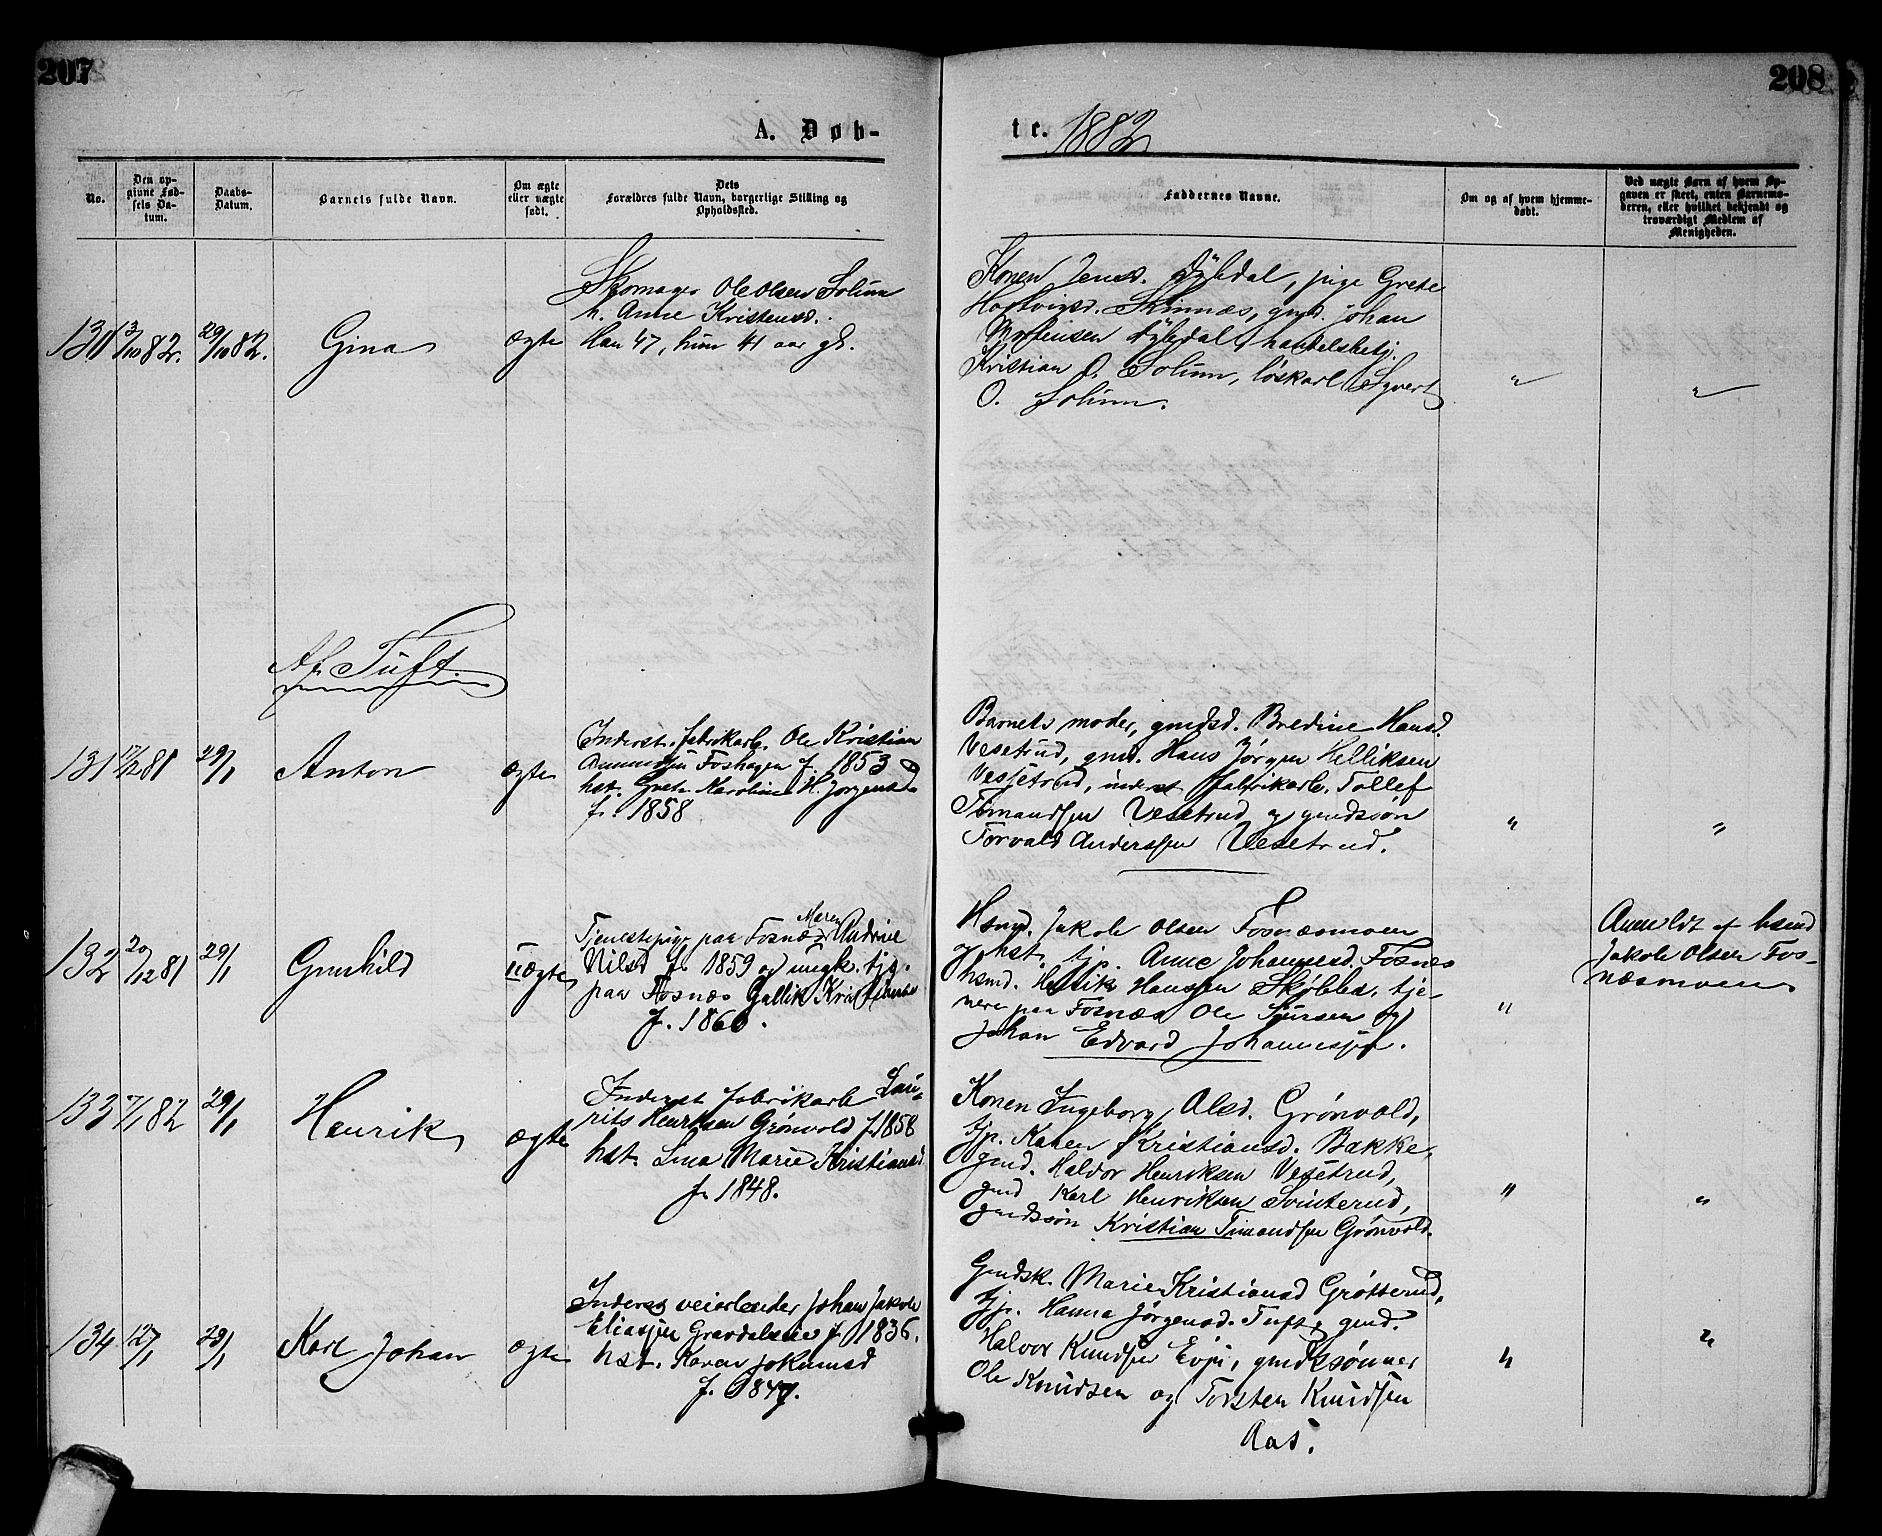 207
208
A. Døb-
te. 1882
No.
Den op-
givne Fød-
sels Da-
tum.
Daabs-
Datum.
Barnets fulde Navn.
Om ægte
eller uægte
født.
Dets
Forældres fulde Navn, borgerlige Stilling og
Opholdssted.
Faddernes Navne.
Om og af hvem hjemme-
døbt.
Ved uægte Børn af hvem Op-
gaven er skeet, enten Barnemo-
deren, eller hvilket bekjendt og
troværdigt Medlem af
Menigheden.
130
3/10 82.
29/10 82.
Gina
ægte
Skomager Ole Olsen Solum
h. Anne Kristensd.
Han 47, hun 41 aar gl.
Konen Jensd. Dybdal, pige Grete
Hartvigsd. Skinnæs, gmd. Johan
Mortensen Dybdal, handelsbetj.
Kristian O. Solum, løskarl Syvert
O. Solum.
"
"
Af Tuft.
131
17/12 81
29/1
Anton
ægte
Inderst. fabrikarb. Ole Kristian
Foshagen f. 1853
hst. Grete Karoline H. Jørgensd.
f. 1858
Barnets moder, gmdsd. Bredine Hansd.
Vesetrud, gmd. Hans Jørgen Helliksen
Vesetrud, inderst fabrikarb. Tollef
Timandsen Vesetrud og gmdssøn
Torvald Anderssen Vesetrud.
"
"
132
20/12 81
29/1
Gunhild
uægte
Tjenestepige paa Fosnæs Maren Andrine
Nilsd. f. 1859 og ungk. tjg.
paa Fosnæs Gullik Kristensen
f. 1860.
Hsmd. Jakob Olsen Fosnæsmoen
og hst. tjp. Anne Johannesd. Fosnæs
hsmd. Henrik Hanssen Skjøbba, tje-
nere paa Fosnæs Ole Sjursen og
Johan Edvard Johannessen.
"
Anmeldt af hsmd
Jakob Olsen Fos-
næsmoen
133
7/1 82
29/1
Henrik
ægte
Inderst fabrikarb Lau-
rits Henriksen Grønvold f. 1858
hst. Lina Marie Kristiansd
f. 1848.
Konen Ingeborg Olsd. Grønvold,
tjp. Karen Kristiansd. Bakke,
gmd. Halvor Henriksen Vesetrud,
gmd Karl Henriksen Svinterud,
gmdssøn Kristian Timandsen Grønvold.
"
"
134
12/1
29/1
Karl Johan
ægte
Inderst veiarbeider Johan Jakob
Eliassen Gravdalseie f. 1836.
hst. Karen Jokumsd
f. 1847.
Gmdsk. Marie Kristiansd Grøtterud,
tjp. Hanna Jørgensd. Tuft, gmd.
Halvor Knudsen Evju, gmdssønner
Ole Knudsen og Torsten Knudsen
Aas.
"
"